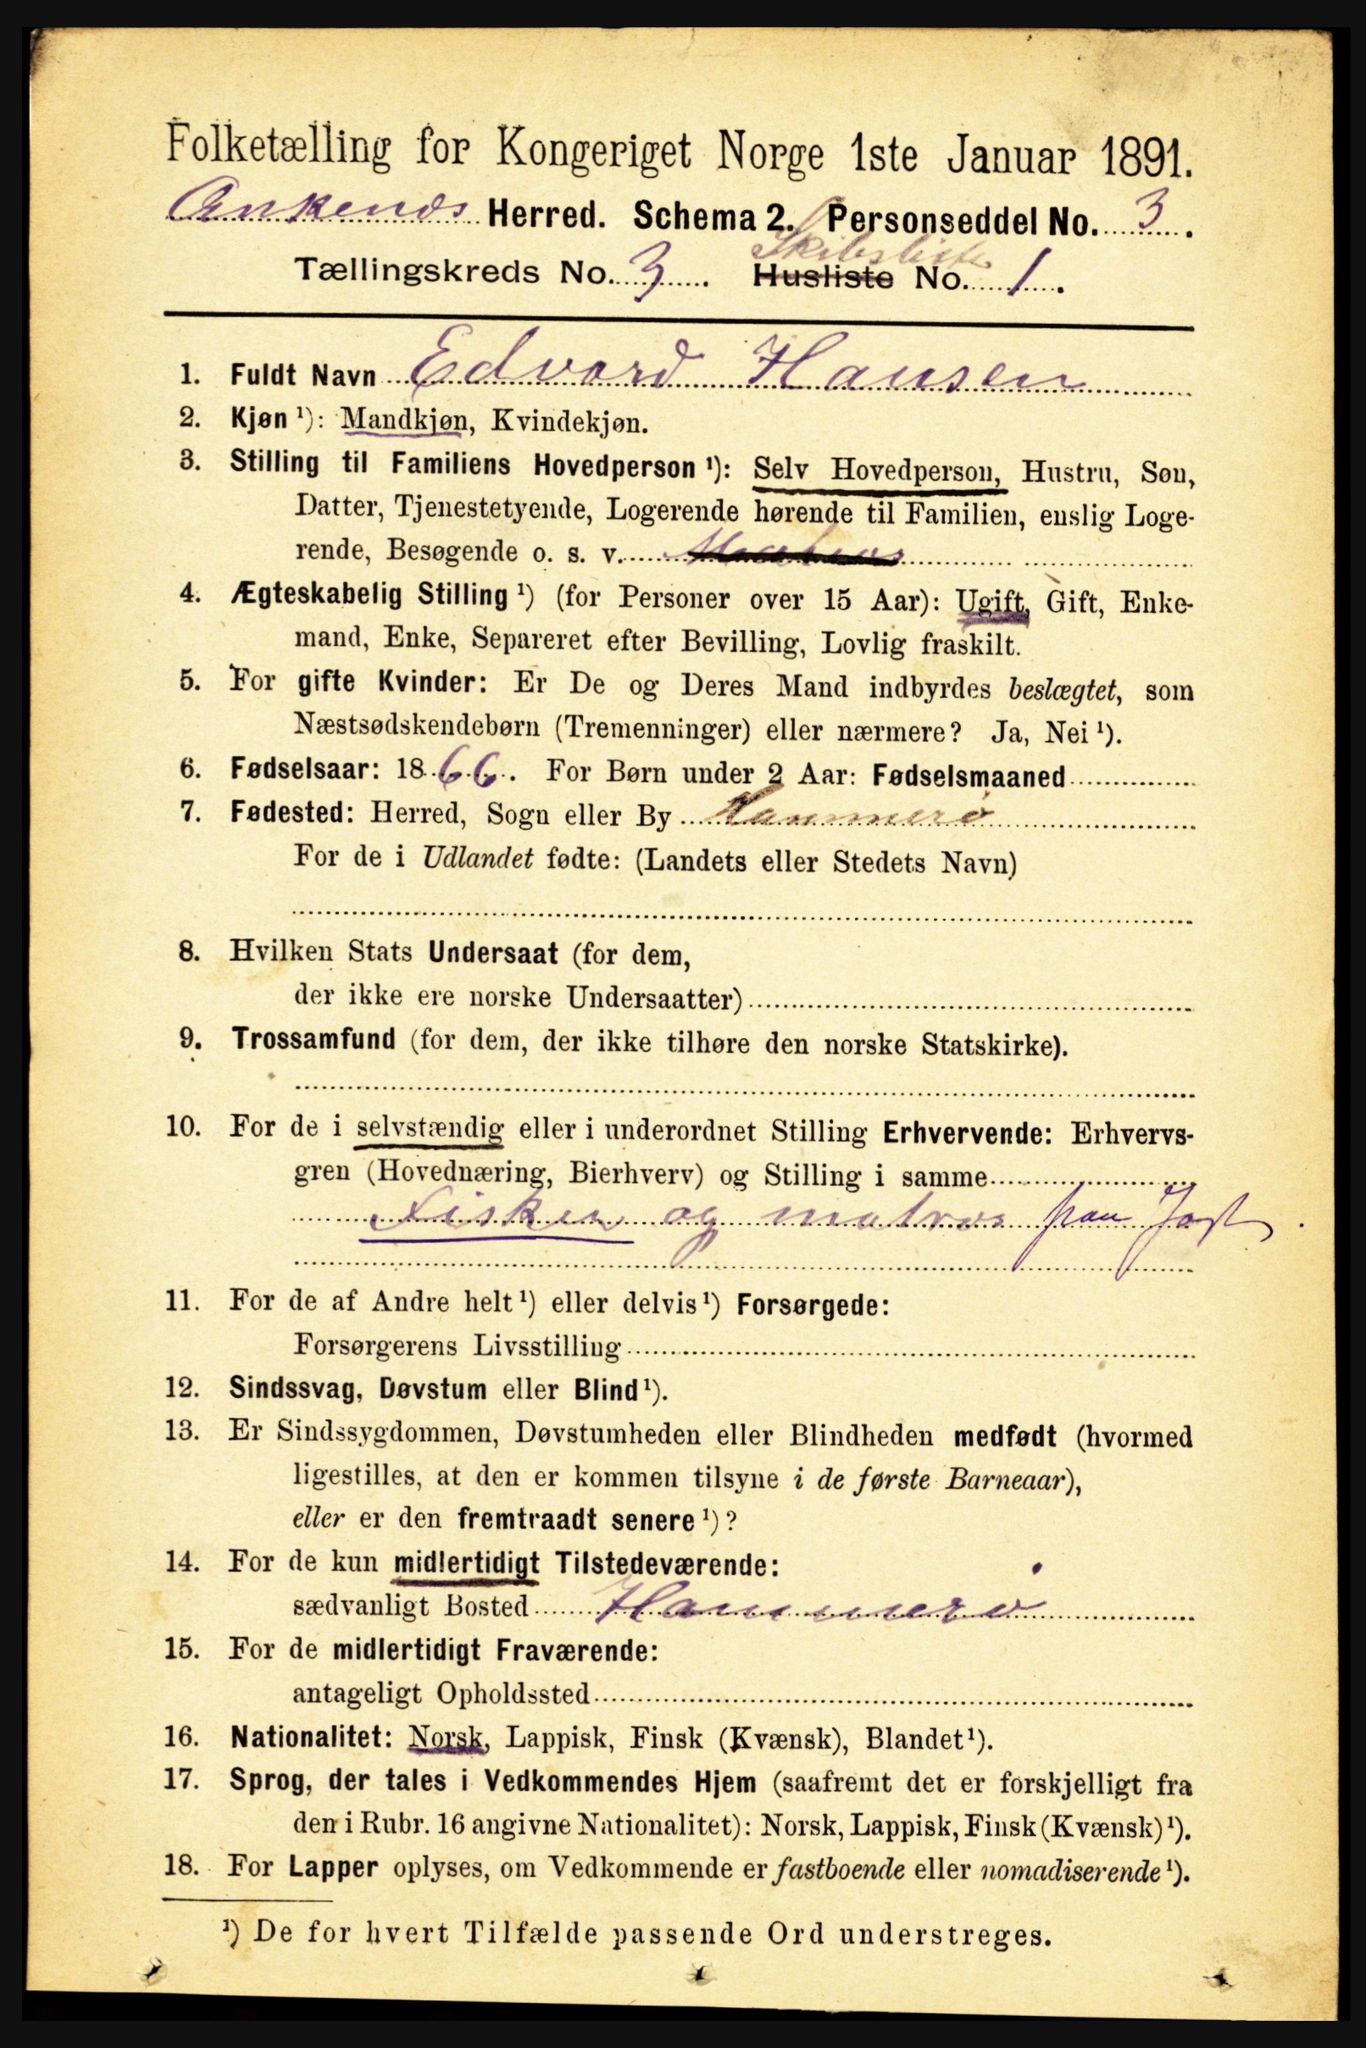 Folketælling for Kongeriget Norge 1ste Januar 1891.
Ankenæs Herred. Schema 2. Personseddel No. 3.
Skibsliste
Tællingskreds No. 3. Husliste No. 1.
1. Fuldt Navn Edvard Hansen
2. Kjøn ¹): Mandkjøn, Kvindekjøn.
3. Stilling til Familiens Hovedperson ¹): Selv Hovedperson, Hustru, Søn,
Datter, Tjenestetyende, Logerende hørende til Familien, enslig Loge-
rende, Besøgende o. s. v. Matros
4. Ægteskabelig Stilling ¹) (for Personer over 15 Aar): Ugift, Gift, Enke-
mand, Enke, Separeret efter Bevilling, Lovlig fraskilt.
5. For gifte Kvinder: Er De og Deres Mand indbyrdes beslægtet, som
Næstsødskendebørn (Tremenninger) eller nærmere? Ja, Nei ¹).
6. Fødselsaar: 1866. For Børn under 2 Aar: Fødselsmaaned
7. Fødested: Herred, Sogn eller By Hammerø
For de i Udlandet fødte: (Landets eller Stedets Navn)
8. Hvilken Stats Undersaat (for dem,
der ikke ere norske Undersaatter)
9. Trossamfund (for dem, der ikke tilhøre den norske Statskirke).
10. For de i selvstændig eller i underordnet Stilling Erhvervende: Erhvervs-
gren (Hovednæring, Bierhverv) og Stilling i samme
Fisker og matros paa Jagt
11. For de af Andre helt ¹) eller delvis ¹) Forsørgede:
Forsørgerens Livsstilling
12. Sindssvag, Døvstum eller Blind ¹).
13. Er Sindssygdommen, Døvstumheden eller Blindheden medfødt (hvormed
ligestilles, at den er kommen tilsyne i de første Barneaar),
eller er den fremtraadt senere ¹)?
14. For de kun midlertidigt Tilstedeværende:
sædvanligt Bosted Hammerø
15. For de midlertidigt Fraværende:
antageligt Opholdssted
16. Nationalitet: Norsk, Lappisk, Finsk (Kvænsk), Blandet ¹).
17. Sprog, der tales i Vedkommendes Hjem (saafremt det er forskjelligt fra
den i Rubr. 16 angivne Nationalitet): Norsk, Lappisk, Finsk (Kvænsk) ¹).
18. For Lapper oplyses, om Vedkommende er fastboende eller nomadiserende ¹).
¹) De for hvert Tilfælde passende Ord understreges.